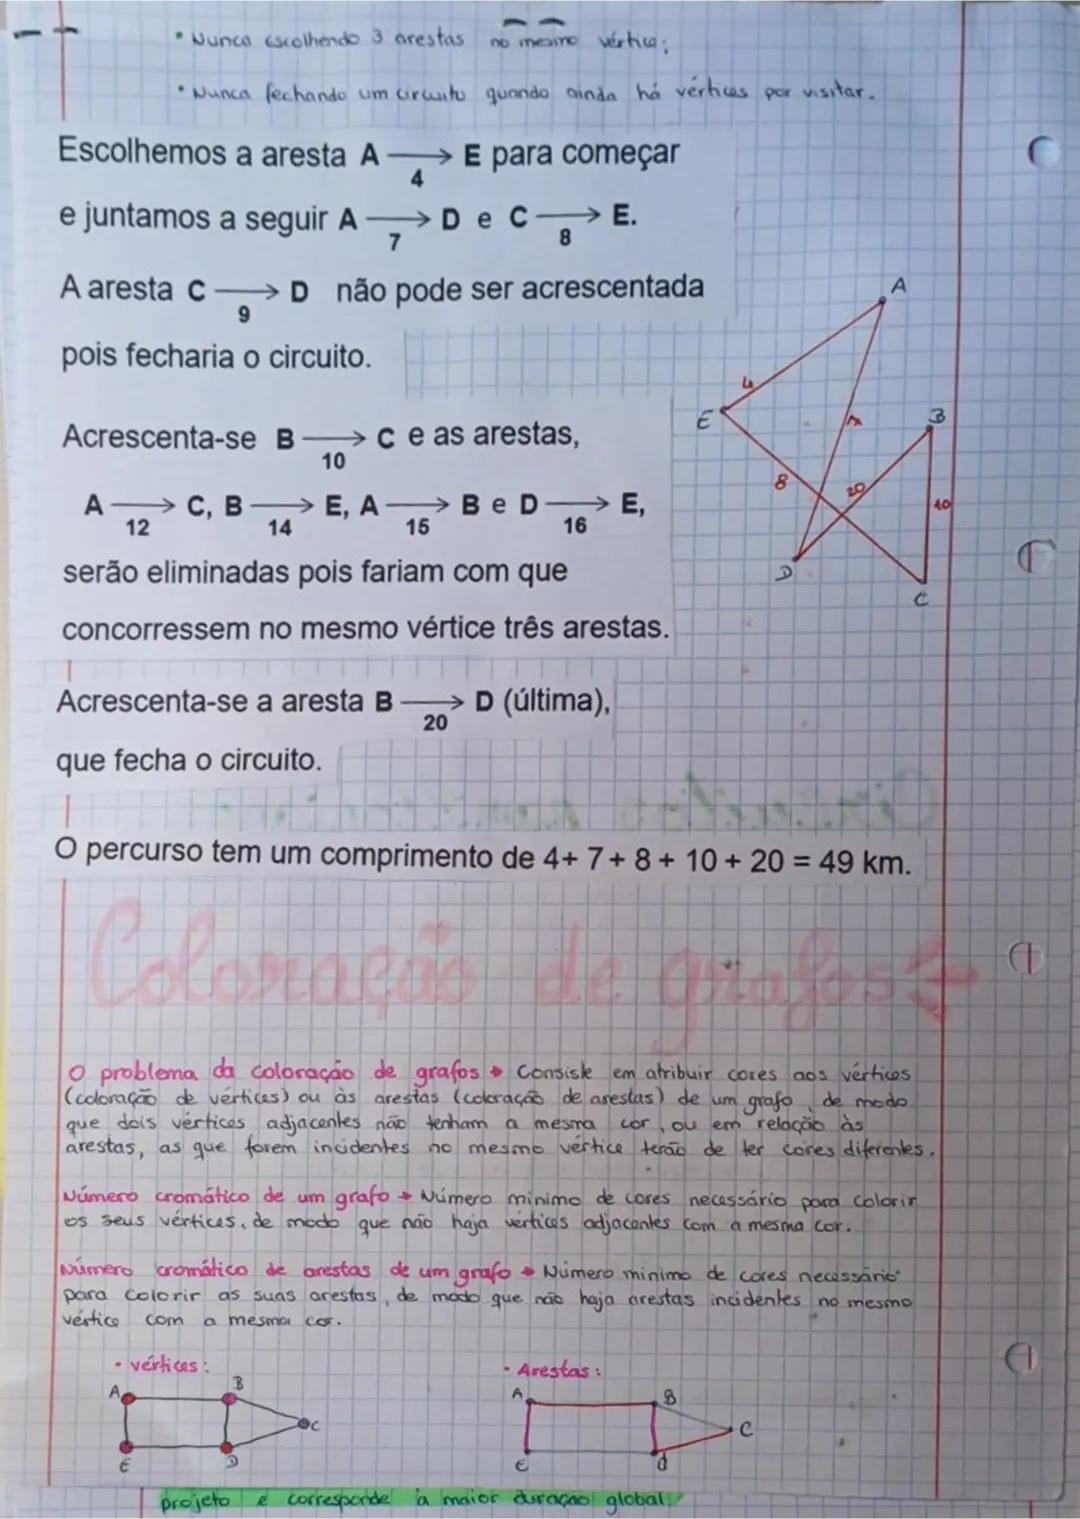 • Nunca escolhendo 3 arestas no mesmo vértice;
• Nunca fechando um circuito quando ainda há vértices por visitar.
Escolhemos a aresta A → E para começar
4
e juntamos a seguir A → D e C → E.
7 8
A aresta C → D não pode ser acrescentada
9
pois fecharia o circuito.
Acrescenta-se B → C e as arestas,
10
A → C, B → E, A → B e D → E,
12 14 15 16
serão eliminadas pois fariam com que
concorressem no mesmo vértice três arestas.
A
4
E
7
B
8
20
10
D
C
Acrescenta-se a aresta B → D (última),
20
que fecha o circuito.
O percurso tem um comprimento de 4+ 7 + 8 + 10 + 20 = 49 km.
Coloração de grafos
O problema da coloração de grafos → Consiste em atribuir cores aos vértices
(coloração de vértices) ou às arestas (coloração de arestas) de um grafo, de modo
que dois vértices adjacentes não tenham a mesma cor, ou em relação às
arestas, as que forem incidentes no mesmo vértice terão de ter cores diferentes.
Número cromático de um grafo → Número minimo de cores necessário para colorir
os seus vértices, de modo que não haja vértices adjacentes com a mesma cor.
Número cromático de arestas de um grafo → Número minimo de cores necessário
para colorir as suas arestas, de modo que não haja arestas incidentes no mesmo
vértice com a mesma cor.
• vértices:
A
B
C
E
D
• Arestas:
A
B
C
E
d
projeto e corresponde à maior duração global.